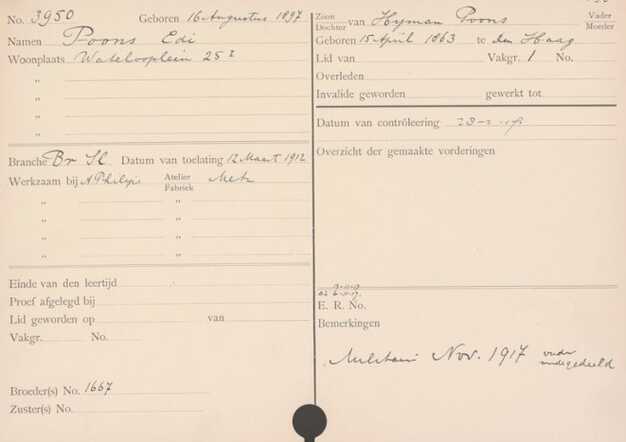 No. 3950 Geboren 16 Augustus 1897
Namen Poons Edi
Woonplaats Waterlooplein 25 I
"
"
"
"
Branche Br Sl. Datum van toelating 12 Maart 1912
Werkzaam bij A Philips Atelier Fabriek Metz
" "
" "
" "
" "
Einde van den leertijd
Proef afgelegd bij
Lid geworden op van
Vakgr. No.
Broeder(s) No. 1667
Zuster(s) No.
Zoon Dochter van Hyman Poons Vader Moeder
Geboren 15 April 1863 te den Haag
Lid van Vakgr. 1 No.
Overleden
Invalide geworden gewerkt tot
Datum van contrôleering
Overzicht der gemaakte vorderingen
E. R. No.
Bemerkingen
Militair Nov. 1917